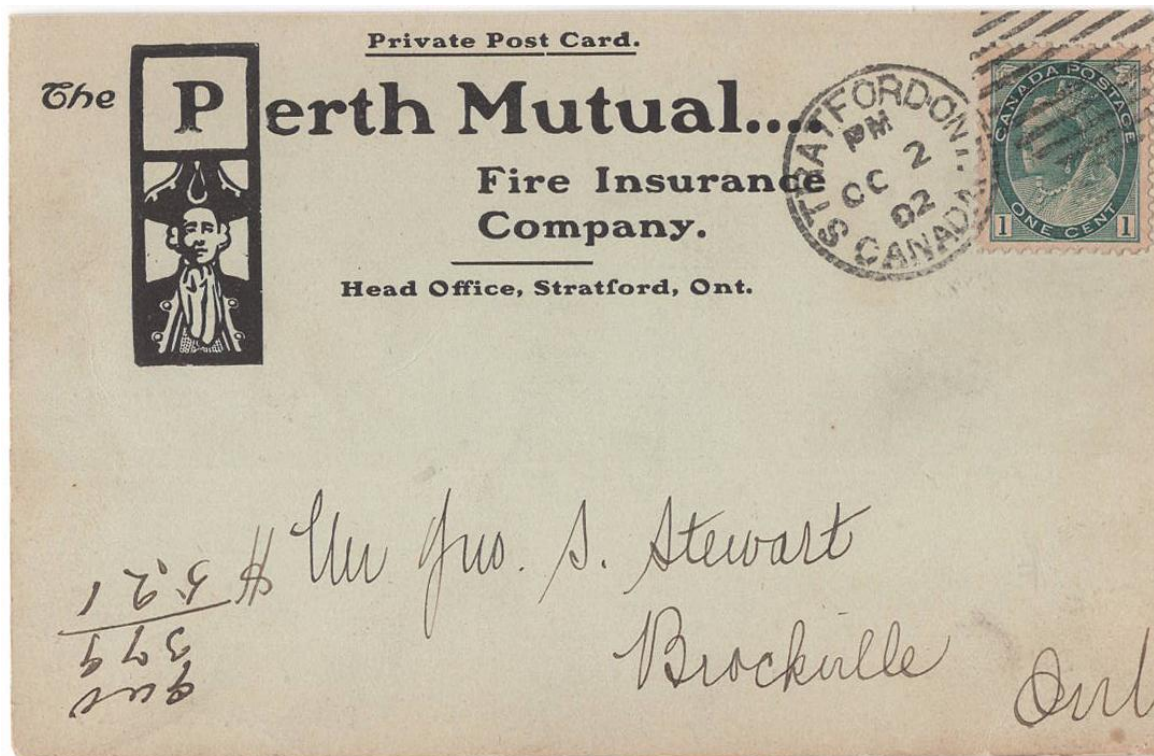 Private Post Card.
The Perth Mutual....
Fire Insurance
Company.
Head Office, Stratford, Ont.
STRATFORD ONT.
PM
OC 2
02
CANADA
CANADA POSTAGE
1 ONE CENT 1
Mr Jno. S. Stewart
Brockville Ont